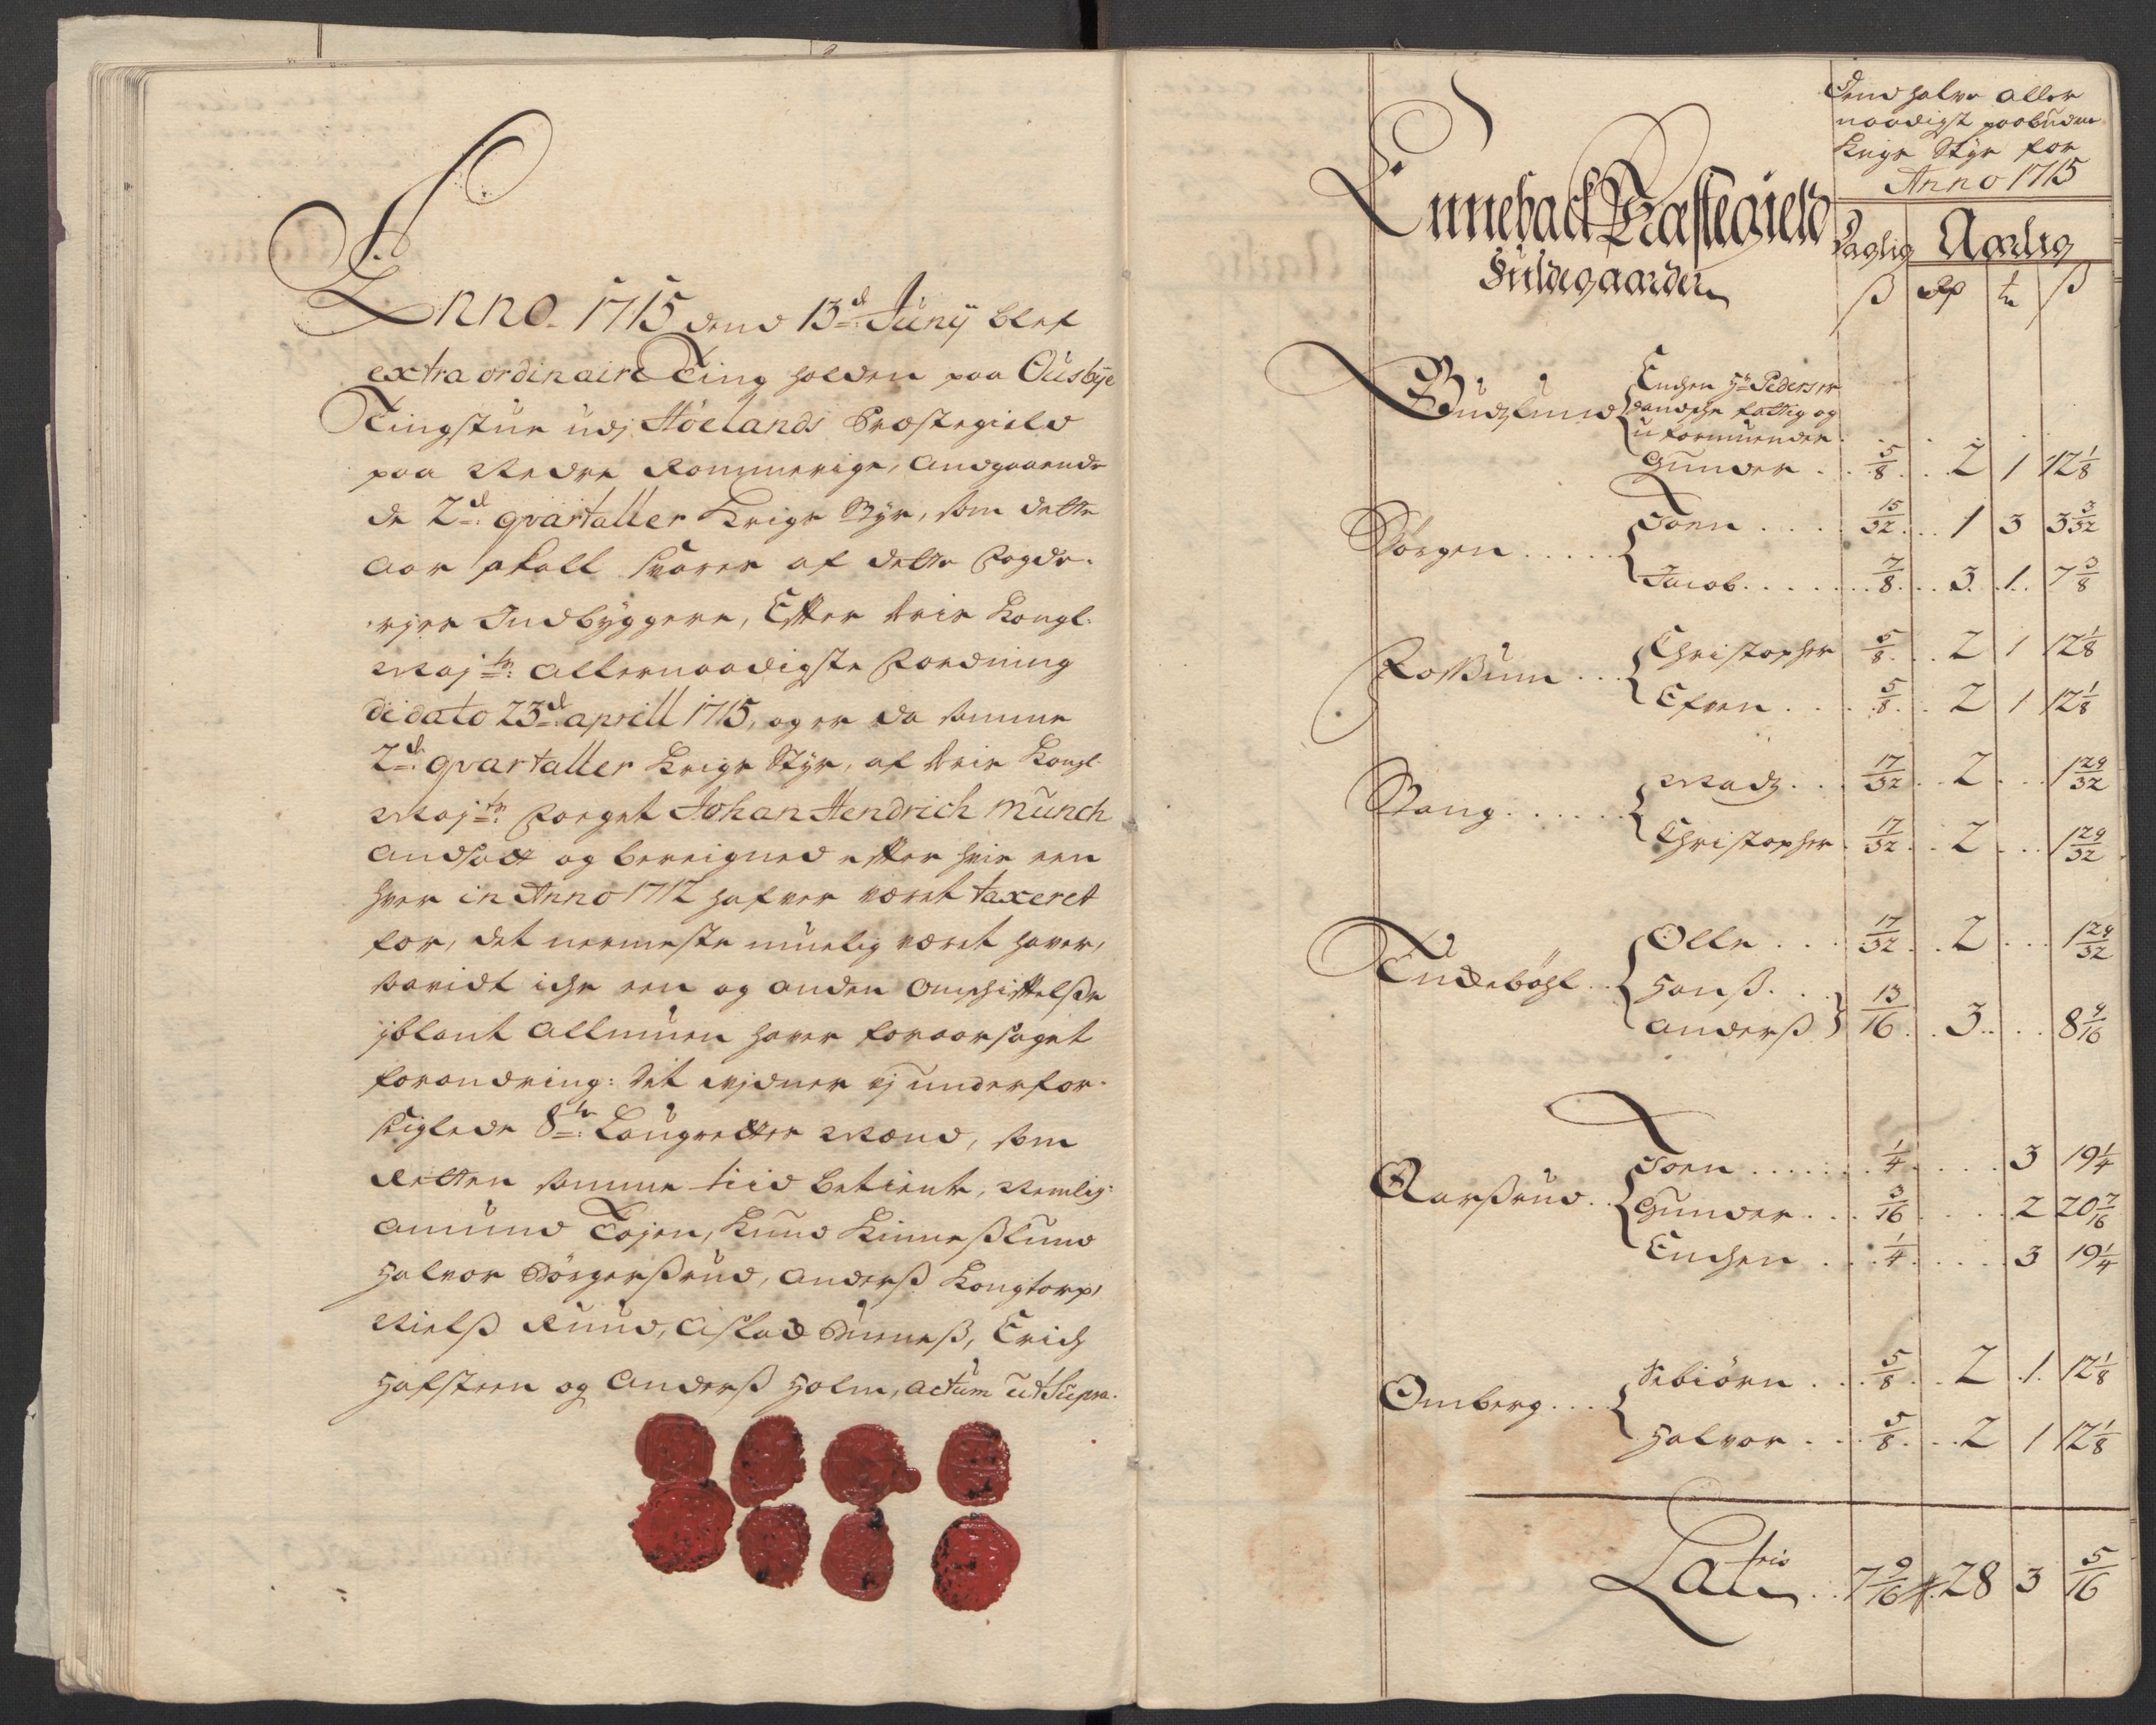 Anno 1715 dend 13de Junÿ blef
extra ordinaire Ting holden paa Ousbÿe
Tingstue udj Höelands Præstegield
paa Nedre Rommerige, Andgaaende
de 2de qvartaller Krigs Stÿr, som dette
Aar skall svares af dette Fogde-
rjes Indbÿggere, Efter deris Kongl.
Maj ts: allernaadigste Fordning
de dato 23de aprill 1715, og er da samme
2de qvartaller Krigs Stÿr, af deris Kongl.
Maj ts: Foeget Johan Hendrich Munch
Andsatt og bereigned efter hvis een
hver in Anno 1712 hafver været taxeret
for, det nermeste muelig været haver,
saavidt iche een og anden Omschiftelße
jblant Allmuen haver foraarsaget
forandring: Dit widner wj underfor-
seiglede 8te: Laugrettes Mænd, som
Retten samme tiid betiente, Nemlig:
Amund Tojen, Knud Kinneßlund
Halvor Börgerßrud, Anderß Kongtorp,
Nielß Ruud, Aslad Bureneß, Erich
Hafsteen og Anderß Holm, actum ut Supra.
Dend halve aller
naadigst paabudne
Krigs Stÿr for
Anno 1715
Enneback Præstegield
Fuldegaarder
Daglig Aarlig
ß Rd ort ß
Gudzlund { Enchen Sr Pederser
gandsche fattig og
uformuende
Gunder . . 5/8 . . 2 1 12 1/8
Börgen . . . . { Joen . . . . 15/32 . . 1 3 3 3/32
Jacob . . . . 7/8 . . 3 . 1 . 7 3/8
Foßum . . . { Christopher 5/8 . . 2 1 12 1/8
Efven . . . 5/8 . . 2 1 12 1/8
Vang . . . . { Madz . . . 17/32 . . 2 . . . 1 29/32
Christopher . 17/32 . . 2 . . . 1 29/32
Tudeböhl . . { Olle . . . 17/32 . . 2 . . . 1 29/32
Hanß . . .
Anderß } 13/16 . . 3 . . . 8 9/16
Aarßrud . . { Joen . . . . 1/4 . . . . 3 19 1/4
Gunder . . . 3/16 . . . . 2 20 7/16
Enchen . . . 1/4 . . . . 3 19 1/4
Omberg . . . { Sebiörn . . . 5/8 . . 2 . 1 . 12 1/8
Halvor . . . 5/8 . . 2 1 12 1/8
Lateris . . 7 9/16 28 3 5/16